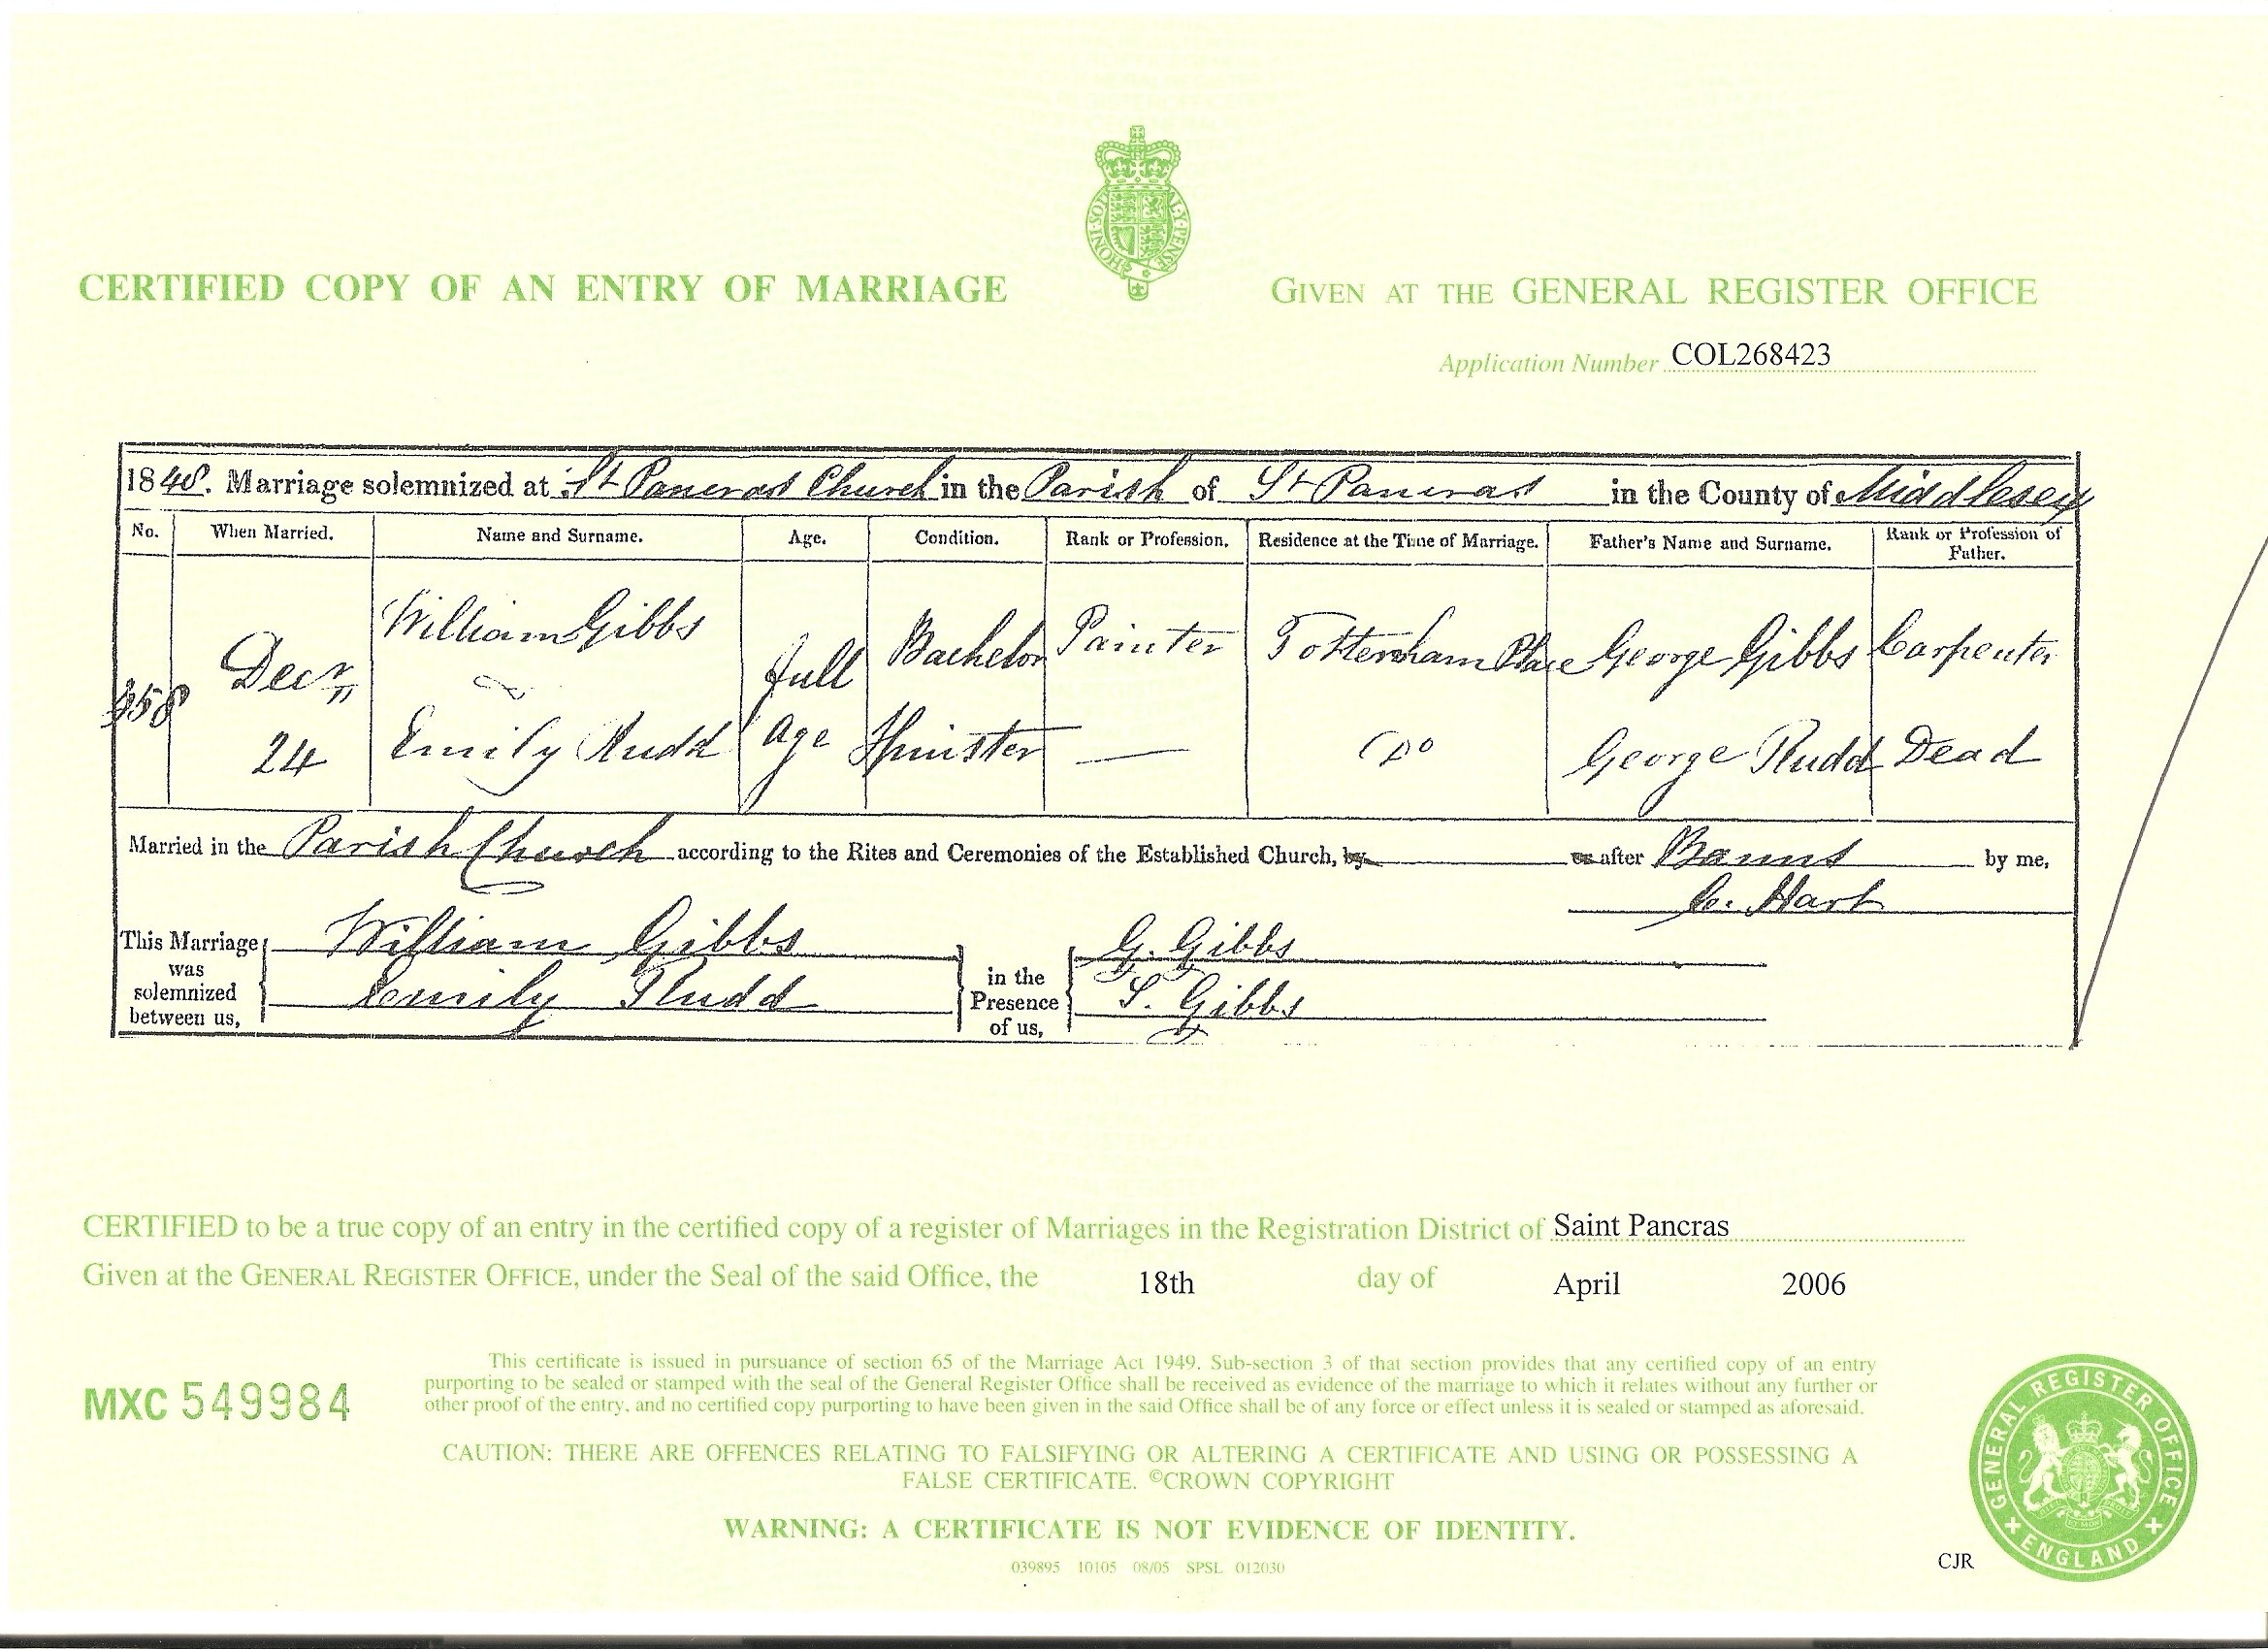 HONI·SOI AL·Y·PENSE
CERTIFIED COPY OF AN ENTRY OF MARRIAGE
GIVEN AT THE GENERAL REGISTER OFFICE
Application Number COL268423
1848. Marriage solemnized at St Pancras Church in the Parish of St Pancras in the County of Middlesex
No. When Married. Name and Surname. Age. Condition. Rank or Profession. Residence at the Time of Marriage. Father's Name and Surname. Rank or Profession of Father.
358 Decr 24
William Gibbs full Bachelor Painter Tottenham Place George Gibbs Carpenter
Emily Rudd age Spinster — Do George Rudd Dead
Married in the Parish Church according to the Rites and Ceremonies of the Established Church, by or after Banns by me,
C. Hart
This Marriage was solemnized between us,
William Gibbs
Emily Rudd
in the Presence of us,
G. Gibbs
S. Gibbs
CERTIFIED to be a true copy of an entry in the certified copy of a register of Marriages in the Registration District of Saint Pancras
Given at the GENERAL REGISTER OFFICE, under the Seal of the said Office, the 18th day of April 2006
MXC 549984
This certificate is issued in pursuance of section 65 of the Marriage Act 1949. Sub-section 3 of that section provides that any certified copy of an entry
purporting to be sealed or stamped with the seal of the General Register Office shall be received as evidence of the marriage to which it relates without any further or
other proof of the entry, and no certified copy purporting to have been given in the said Office shall be of any force or effect unless it is sealed or stamped as aforesaid.
CAUTION: THERE ARE OFFENCES RELATING TO FALSIFYING OR ALTERING A CERTIFICATE AND USING OR POSSESSING A
FALSE CERTIFICATE. ©CROWN COPYRIGHT
WARNING: A CERTIFICATE IS NOT EVIDENCE OF IDENTITY.
039895 10105 08/05 SPSL 012030
CJR
GENERAL REGISTER OFFICE
ENGLAND